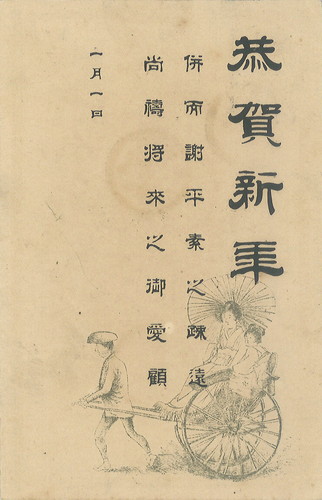 恭賀新年
併而謝平素之疎遠
尚禱将来之御愛顧
一月一日